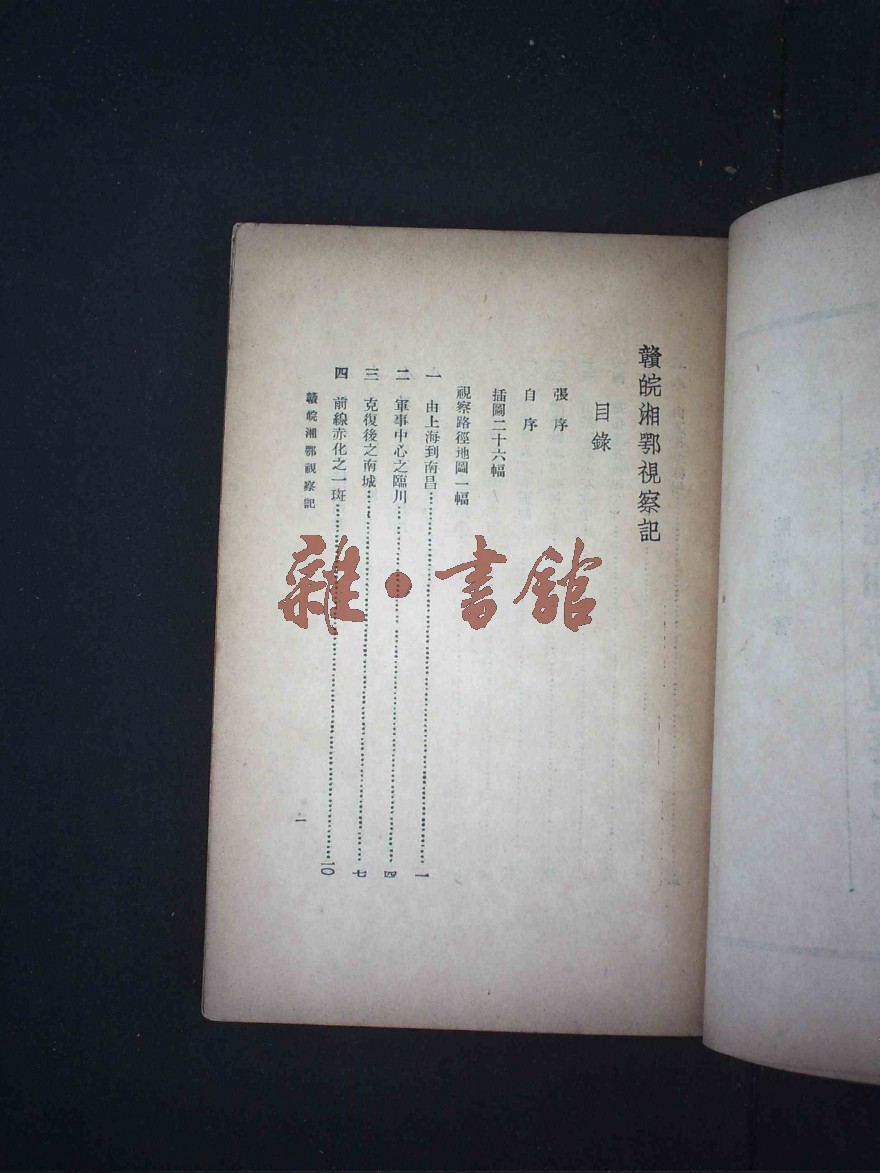 贛皖湘鄂視察記
目錄
張序
自序
插圖二十六幅
視察路徑地圖一幅
一 由上海到南昌……一
二 軍事中心之臨川……四
三 克復後之南城……七
四 前線赤化之一斑……一〇
贛皖湘鄂視察記
一
雜·書館